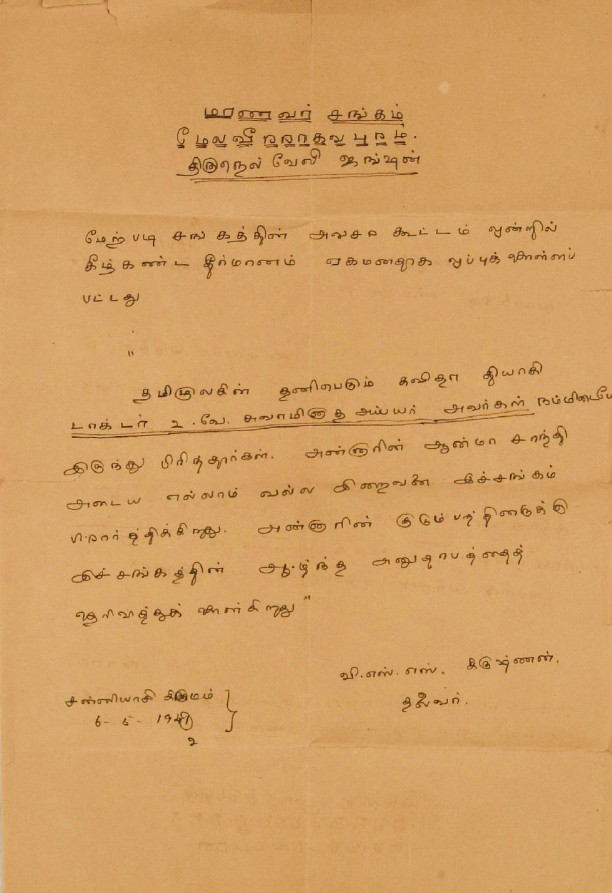 மாணவர் சங்கம்
மேலவீரராகவபுரம்.
திருநெல்வேலி ஜங்ஷன்
மேற்படி சங்கத்தின் அவசர கூட்டம் ஒன்றில்
கீழ்கண்ட தீர்மானம் ஏகமனதாக ஒப்புக் கொள்ளப்
பட்டது
"
தமிழுலகின் தனிபெரும் கவிதா தியாகி
டாக்டர் உ.வே. சுவாமிநாத அய்யர் அவர்கள் நம்மிடையே
இருந்து பிரிந்தார்கள். அன்னாரின் ஆன்மா சாந்தி
அடைய எல்லாம் வல்ல இறைவனை இச்சங்கம்
பிரார்த்திக்கிறது. அன்னாரின் குடும்பத்தினருக்கு
இச்சங்கத்தின் ஆழ்ந்த அனுதாபத்தைத்
தெரிவித்துக் கொள்கிறது"
வி.எஸ்.எஸ். கிருஷ்ணன்.
தலைவர்.
சன்னியாசி கிராமம்
6-5-1942